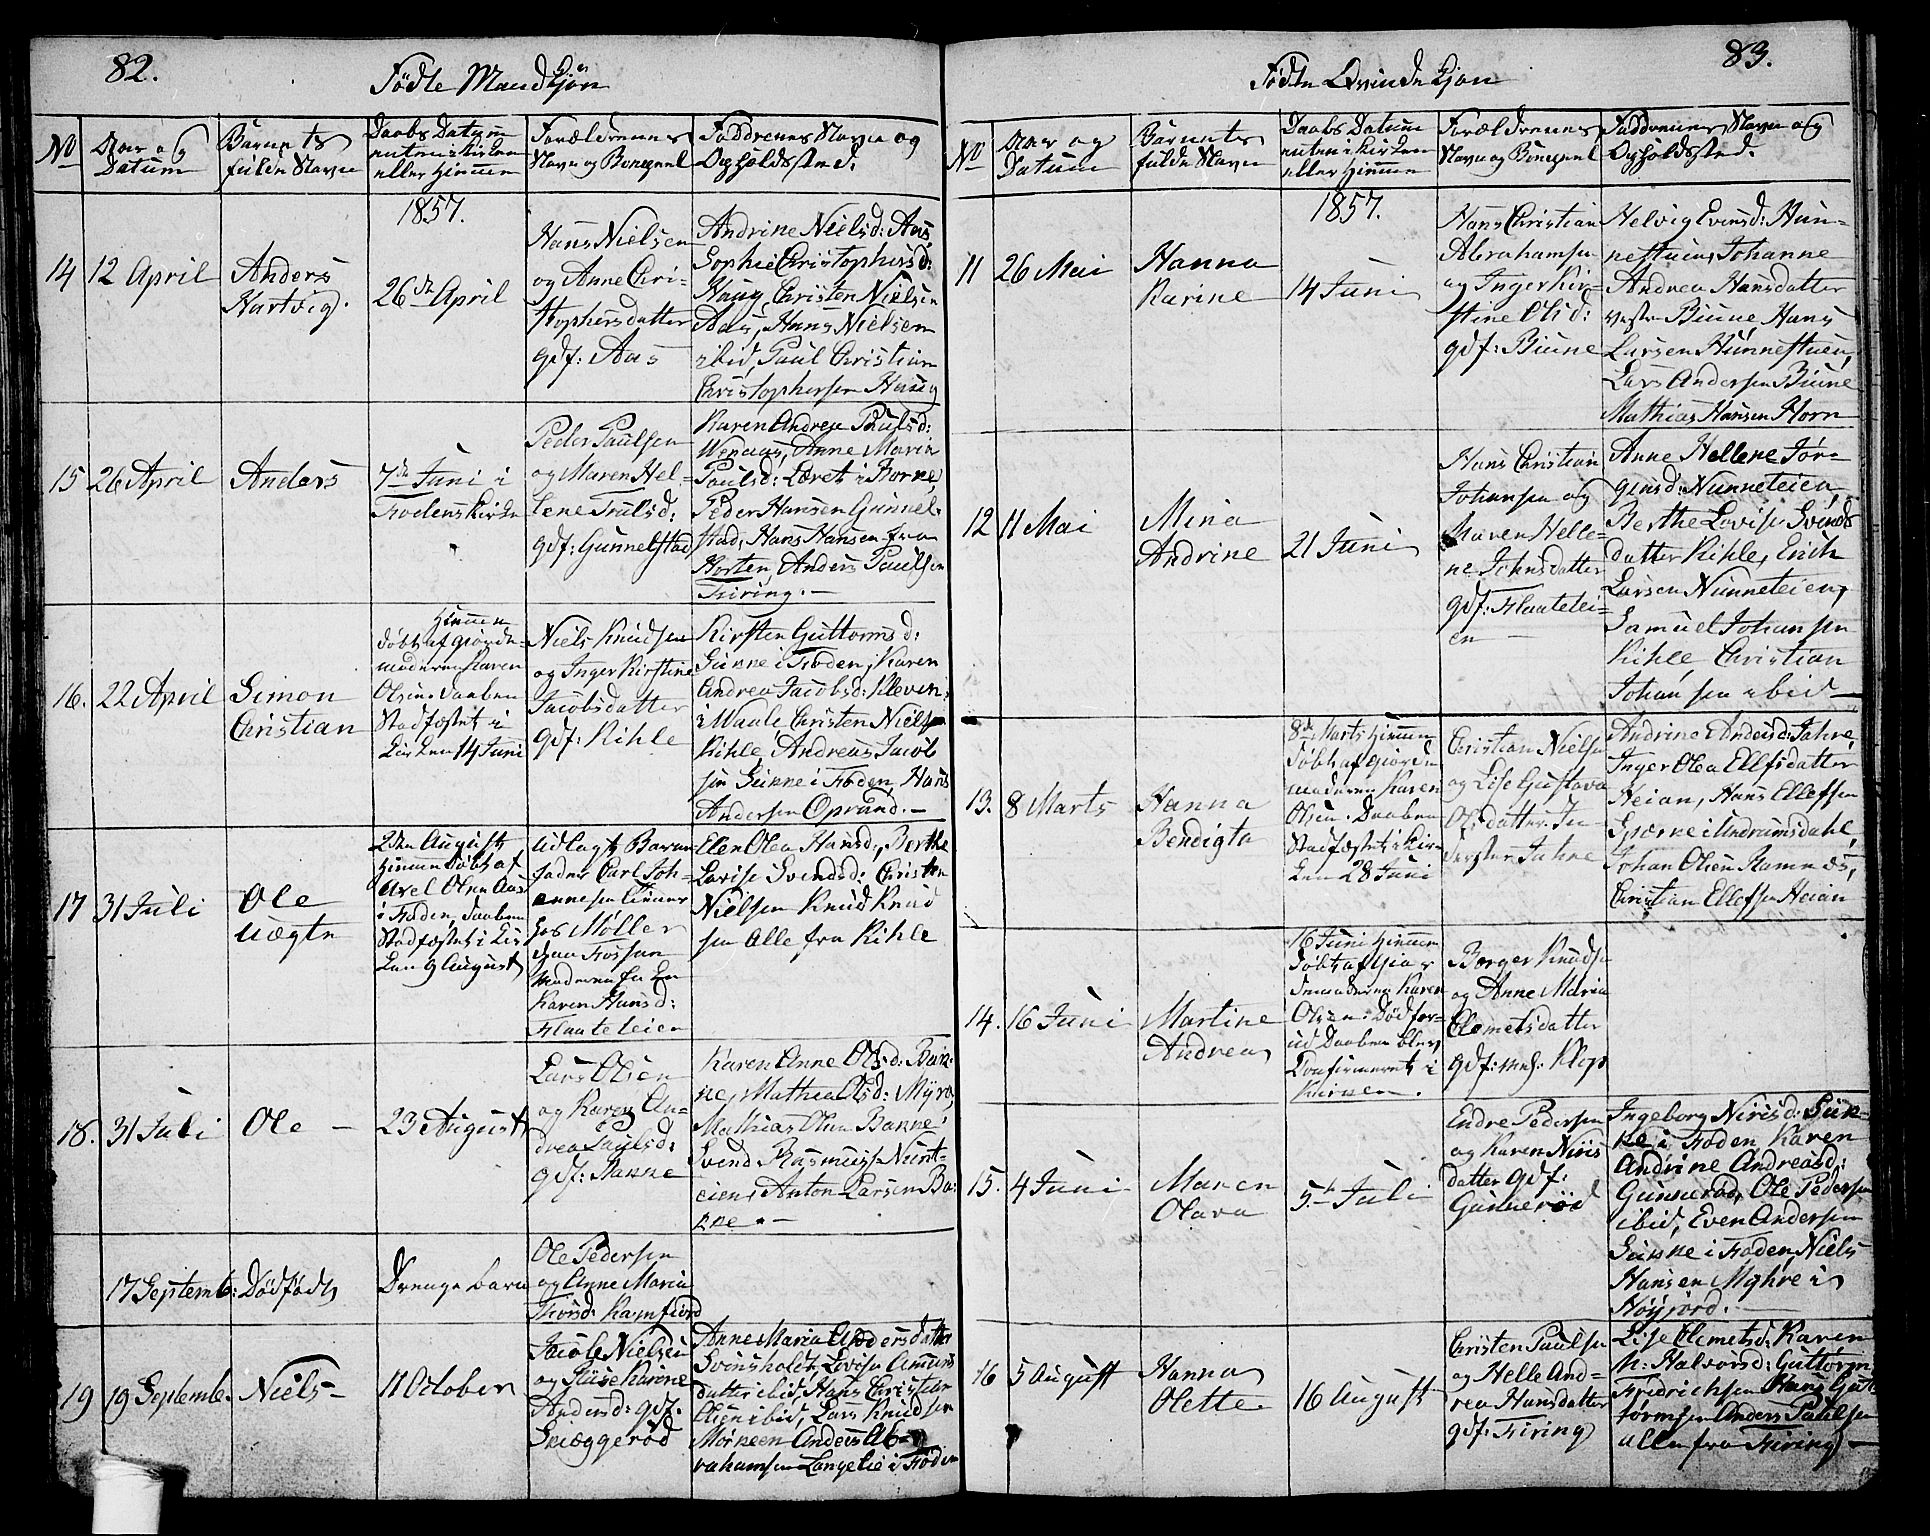 82.
Födte Mandkjön
No
Aar og
Datum
Barnets
fulde Navn
Daabs Datum
enten i Kirken
eller Hiemme
Forældrenes
Navn og Borgerl
Faddrenes Navn og
Opholdssted.
1857.
14
12 April
Anders
Hartvig.
26de April
Hans Nielsen
og Anne Chri-
stophersdatter
gdf: Aas
Andrine Nielsd: Aas,
Sophie Christophersd:
Haug, Christen Nielsen
Aas, Hans Nielsen
ibid, Paul Christian
Christophersen Haug
15
26 April
Anders
7de Juni i
Fodens Kirke
Peder Paulsen
og Maren Hel-
lene Trulsd:
gdf: Gunnelstad
Karen Andrea Paulsd:
Wenaas, Anne Maria
Paulsd: Læret i Borre,
Peder Hansen Gunnel-
stad, Hans Hansen fra
Horten, Anders Paulsen
Firing. —
16.
22 April
Simon
Christian
Hiemme
döbt af Giorde-
moderen Karen
Olsen. Daaben
Stadfæstet i
Kirken 14 Juni
Niels Knudsen
og Inger Kirstine
Jacobsdatter
gdf: Kihle
Kirsten Guttormsd:
Sukke i Foden, Karen
Andrea Jacobsd: Kleven
i Waale, Christen Niels
Kihle, Andreas Jacob
sen Sukke i Foden, Hans
Andersen Oprand. —
17
31 Juli
Ole
uægte
2den August
Hiemmedöbt af
Axel Olsen Aas
i Foden, Daaben
Stadfæstet i Kir
ken 9 August
Udlagt Barne
fader Carl Joh-
annesen
hos Möller
moderen
Karen Hansd:
Flaateteien
Elen Olea Hansd:, Berthe
Lovise Svendsd: Christen
Nielsen Knud Knud
sen Alle fra Kihle
18.
31 Juli
Ole —
23 August
Lars Olsen
og Karen An-
drea Paulsd:
gdf: Bakke
Karen Anne Olsd: Bak-
ke, Mathea Olsd: Myra,
Mathias Olsen Bakke
Svend Rasmuss. Nunt-
eien, Anton Larsen Ba-
kke. —
17 Septemb:
Dödfödt
Drengebarn
Ole Pedersen
og Anne Maria
Thorsd: Ramfjord
19
19 Septembe.
Niels —
11 October
Jacob Nielsen
og Karine
Andersd: gdf:
Skieggeröd
Anne Maria Andersdatter
Svinsholdt, Lovise Amunds
datter ibid, Hans Christian
Olsen ibid, Lars Knudsen
Mörkeen Anders Ab-
rahamsen Langelie i Foden
83.
Födte Qvindekjön
No
Aar og
Datum
Barnets
fulde Navn
Daabs Datum
enten i Kirken
eller Hiemme
Forældrenes
Navn og Borgerl
Faddrenes Navn og
Opholdssted.
1857.
11
26 Mai
Hanna
Karine
14 Juni
Hans Christian
Abrahamsen
og Inger Kir-
stine Olsd:
gdf: Biune
Helvig Evensd: Hun-
nestuen, Johanne
Andrea Hansdatter
vestre Biune, Hans
Larsen Hunnestuen,
Lars Andersen Biune
Mathias Hansen Horn
12
11 Mai
Mina
Andrine
21 Juni
Hans Christian
Johansen og
Maren Helle-
ne Johnsdatter
gdf: Flaatetei-
en —
Anne Hellene Jör-
gensd: Nunneteien,
Berthe Lovise Svends
datter Kihle, Erich
Larsen Nunneteien,
Samuel Johansen
Kihle Christian
Johansen ibid —
13.
8 Marts
Hanna
Bendigta
8de Marts Hiemme
döbt af Giorde
moderen Karen
Olsen. Daaben
Stadfæstet i Kir-
ken 28 Juni
Christian Nielsen
og Lise Gustava
Olsdatter In-
derster Jahre
Andrine Andersd: Jahre,
Inger Olea Ellefsdatter
Heian, Hans Ellefsen
Sperke i Undrumsdahl,
Johan Olsen Ramnæs,
Christian Ellefsen Heian
14.
16 Juni
Martine
Andrea
16 Juni Hiemme
döbt af Gior
demoderen Karen
Olsen. Död for-
ud Daaben blev
Confirmeret i
Kirken.
Borger Knuds
og Anne Maria
Clemetsdatter
gdf: Klop
15.
4 Juni
Maren
Olava
5te Juli
Endre Pedersen
og Karen Niris
datter gdf:
Gunneröd
Ingeborg Nirisd: Suk-
ke i Foden, Karen
Andrine Andreasd:
Gunneröd, Ole Pedersen
ibid, Even Andersen
Sukke i Foden, Niels
Hansen Myhre i
Höyjord. —
16
5 August
Hanna
Olette
16 August
Christen Paulsen
og Helle And-
rea Hansdatter
gdf: Firing
Lise Clemetsd: Karen
M: Halvorsd: Guttorm
Fredrichsen Hans Gut-
tormsen Anders Paulsen
alle fra Firing —